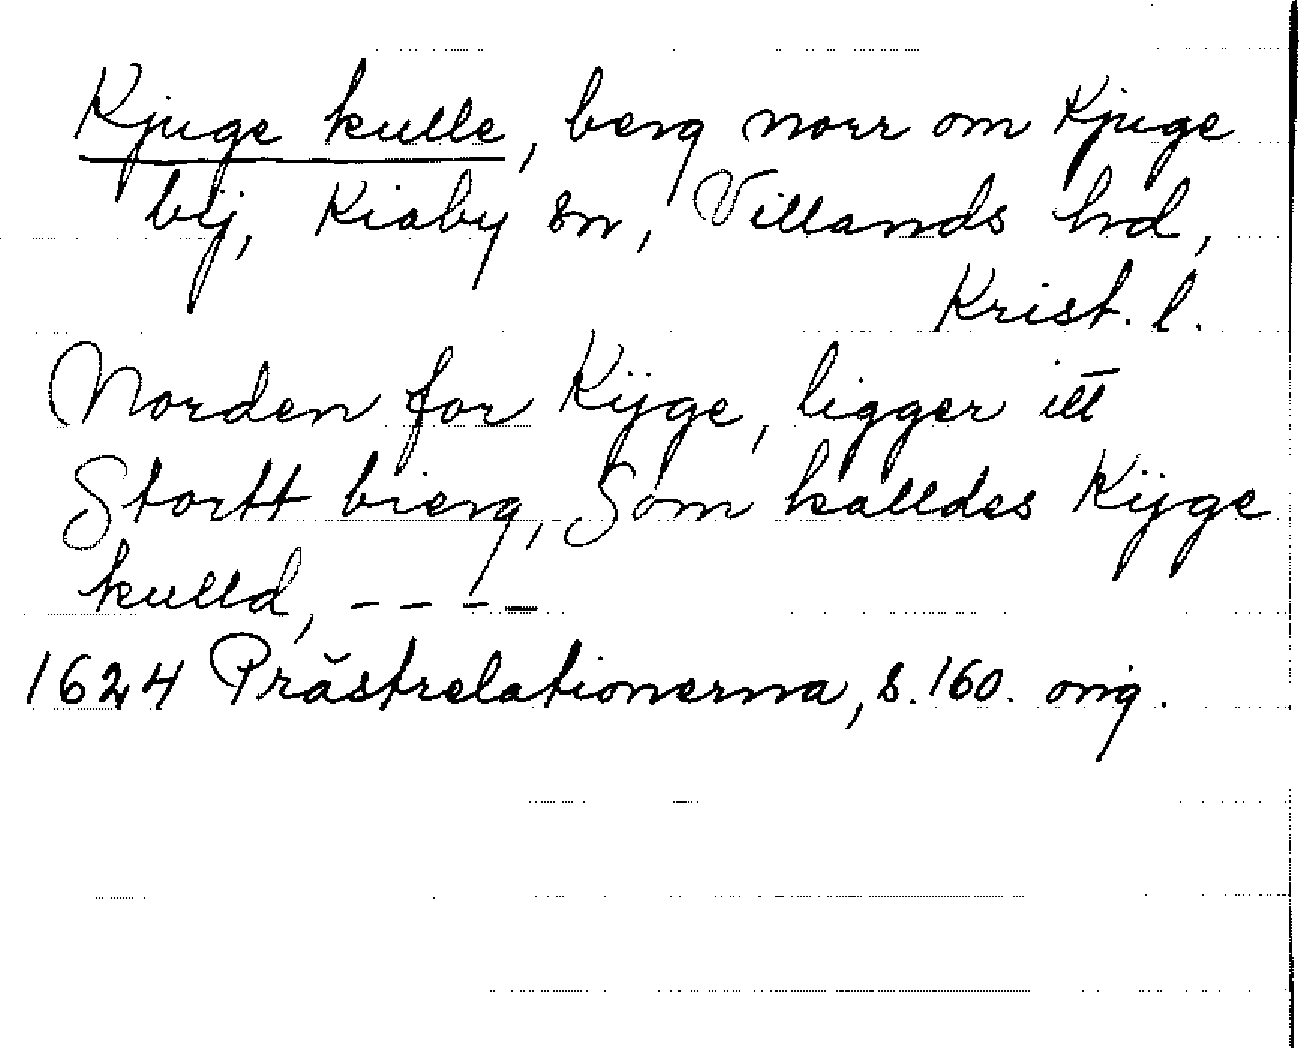 Kjuge kulle, berg norr om Kjuge
bij, Kiaby sn, Villands hd,
Krist. l.
Norden for Kijge, ligger itt
Stortt bierg, Som kalldes Kijge
kulld, - - - -
1624 Prästrelationerna, s. 160. orig.